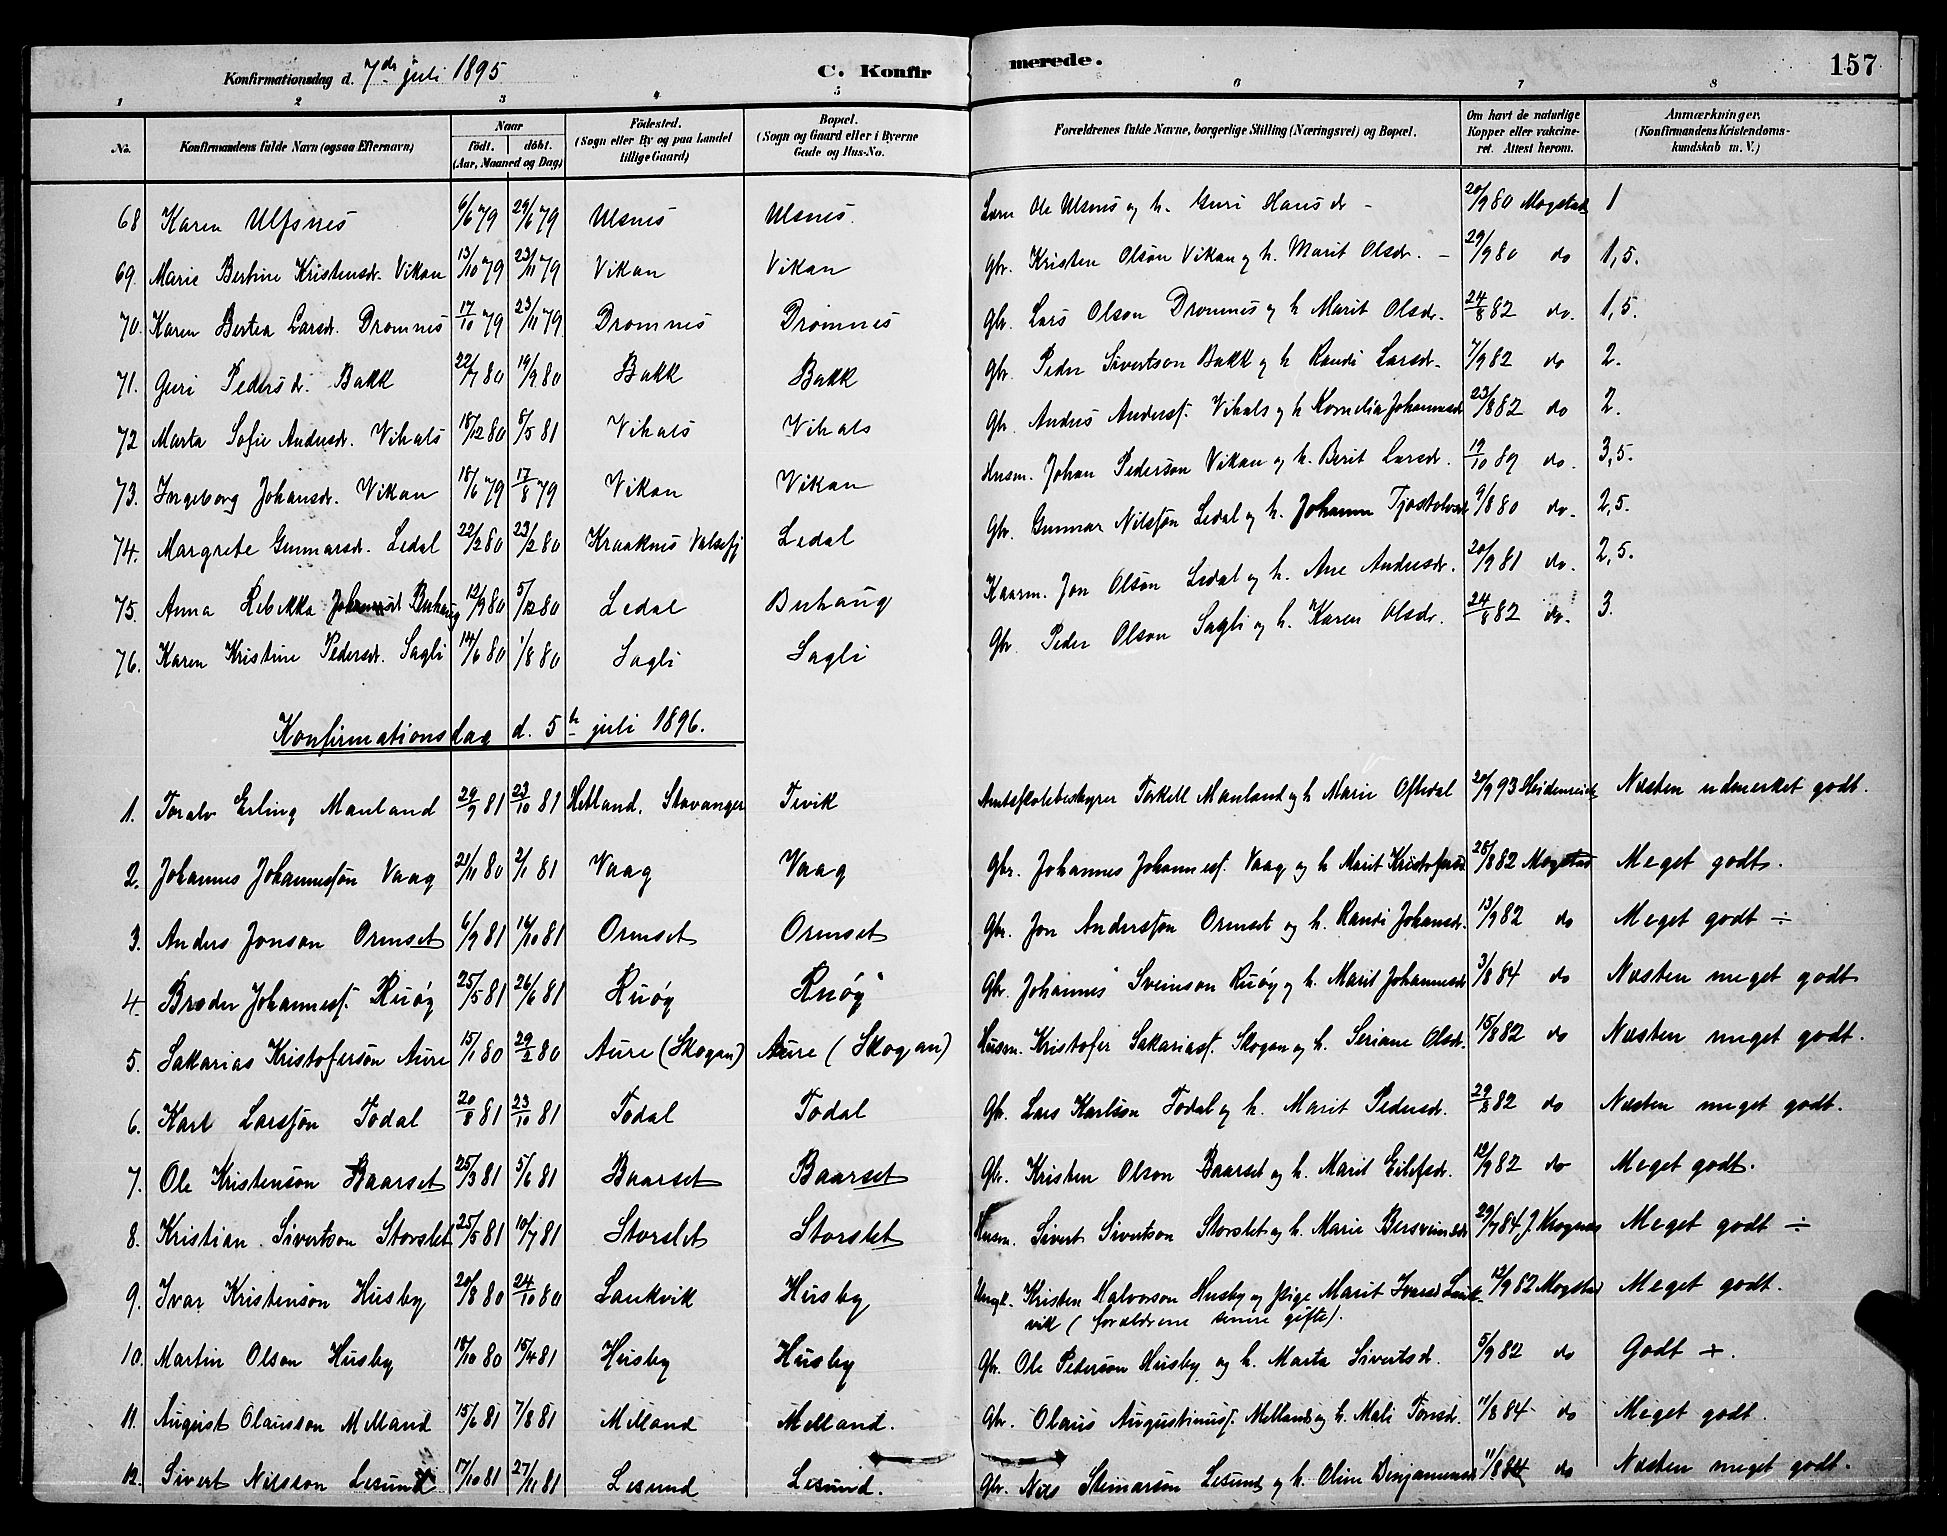 Konfirmationsdag d. 7de juli 1895 C. Konfirmerede. 157
1 2 3 4 5 6 7 8
No. Konfirmandens fulde Navn (ogsaa Efternavn) Naar født. døbt. (Aar, Maaned og Dag) Fødested. (Sogn eller By og paa Landet tillige Gaard) Bopæl. (Sogn og Gaard eller i Byerne Gade og Hus-No. Forældrenes fulde Navne, borgerlige Stilling (Næringsvei) og Bopæl. Om havt de naturlige Kopper eller vakcineret. Attest herom. Anmærkninger. (Konfirmandens Kristendomskundskab m. V.)
68 Karen Ulfsnes 6/6 79 29/6 79 Ulsnes Ulsnes. Ole Ulsnes og h. Guri Hansdr - 20/9 80 Mogstad 1
69. Marie Bertine Kristensdr. Vikan 13/10 79 23/11 79 Vikan Vikan Gbr. Kristen Olsøn Vikan og h. Marit Olsdr. - 29/9 80 do 1,5.
70. Karen Bertea Larsdr. Dromnes 17/10 79 23/11 79 Dromnes Dromnes Gbr. Lars Olson Dromnes og h Marit Olsdr. 24/8 82 do. 1,5.
71. Guri Pedersdr. Bakk 22/7 80 19/9 80 Bakk Bakk Gbr. Peder Sivertson Bakk og h Randi Larsdr. 7/9 82 do 2.
72 Marta Sofie Andersdr. Vihals 18/12 80 8/5 81 Vihals Vihals Gbr. Anders Andersf. Vihals og h Kornelia Johannesdr 23/8 82 do 2.
73. Ingeborg Johansdr. Vikan 18/6 79 17/8 79 Vikan Vikan Husm. Johan Pederson Vikan og h. Berit Larsdr. 19/10 89 do. 3,5.
74. Margrete Gunnarsdr. Ledal 22/2 80 23/2 80 Kraaknes Valsøfj Ledal Gbr. Gunnar Nilsøn Ledal og h. Johanna Tjostolvsd 9/8 80 do. 2,5.
75. Anna Rebekka Johannesdr Buhaug 12/9 80 5/12 80 Ledal Buhaug Kaarm. Jon Olsøn Ledal og h. Ane Andersdr. 20/9 81 do. 2,5.
76. Karen Kristine Pedersdr. Sagli 14/6 80 1/8 80 Sagli Sagli Gbr. Peder Olson Sagli og h. Karen Olsdr. 24/8 82 do. 3.
Konfirmationsdag d. 5te juli 1896.
1. Toralv Erling Manland 29/9 81 23/10 81 Hetland, Stavanger Tevik Amtsskolebestyrer Torkell Manland og h Marie Oftedal 20/9 93 Heidenreich Næsten udmerket godt.
2. Johannes Johannessøn Vaag 21/11 80 2/1 81 Vaag Vaag Gbr. Johannes Johannesf. Vaag og h Marit Kristofersd 26/8 82 Mogstad Meget godt.
3. Anders Jonson Ormset 6/9 81 16/10 81 Ormset Ormset Gbr. Jon Anderssøn Ormset og h. Randi Johansdr. 13/9 82 do Meget godt ÷
4 Broder Johannesf. Ruøy 25/5 81 26/6 81 Ruøy Ruøy Gbr. Johannes Sveinson Ruøy og h. Marit Johannesdr 3/8 84 do Næsten meget godt
5. Sakarias Kristofersøn Aure 15/1 80 29/2 80 Aure (Skogan) Aure (Skogan) Husm. Kristofer Sakariasf. Skogan og h. Seriane Olsdr. 15/8 82 do Næsten meget godt.
6. Karl Larssøn Todal 20/8 81 23/10 81 Todal Todal Gbr. Lars Karlson Todal og h. Marit Pedersdr. 29/8 82 do Næsten meget godt.
7. Ole Kristensøn Baarset 25/3 81 5/6 81 Baarset Baarset Gbr. Kristen Olson Baarset og h. Marit Eilefsdr. 12/9 82 do Meget godt.
8. Kristian Sivertson Storslet 25/5 81 10/7 81 Storslet Storslet Husm. Sivert Sivertson Storslet og h. Marie Bersveinsdr 29/7 84 J. Krognes Meget godt ÷
9. Ivar Kristensøn Husby 20/8 80 24/10 80 Laukvik Husby Ungk. Kristen Halvorson Husby og pige Marit Ivarsd Lauk- 12/9 82 Mogstad Meget godt.
vik (forældrene senere gifte).
10. Martin Olson Husby 18/10 80 15/4 81 Husby Husby Gbr. Ole Pederson Husby og h. Marta Sivertsdr. 5/9 82 do Godt +.
11. August Olausson Melland 15/6 81 7/8 81 Melland Melland. Gbr. Olaus Augustinusf. Melland og h. Mali Tørisd. 11/8 84 do Meget godt.
12. Sivert Nilsson Lesund 17/10 81 27/11 81 Lesund Lesund. Gbr. Nils Steinarsøn Lesund og h. Oline Benjaminsd 11/8 84 do Næsten meget godt.